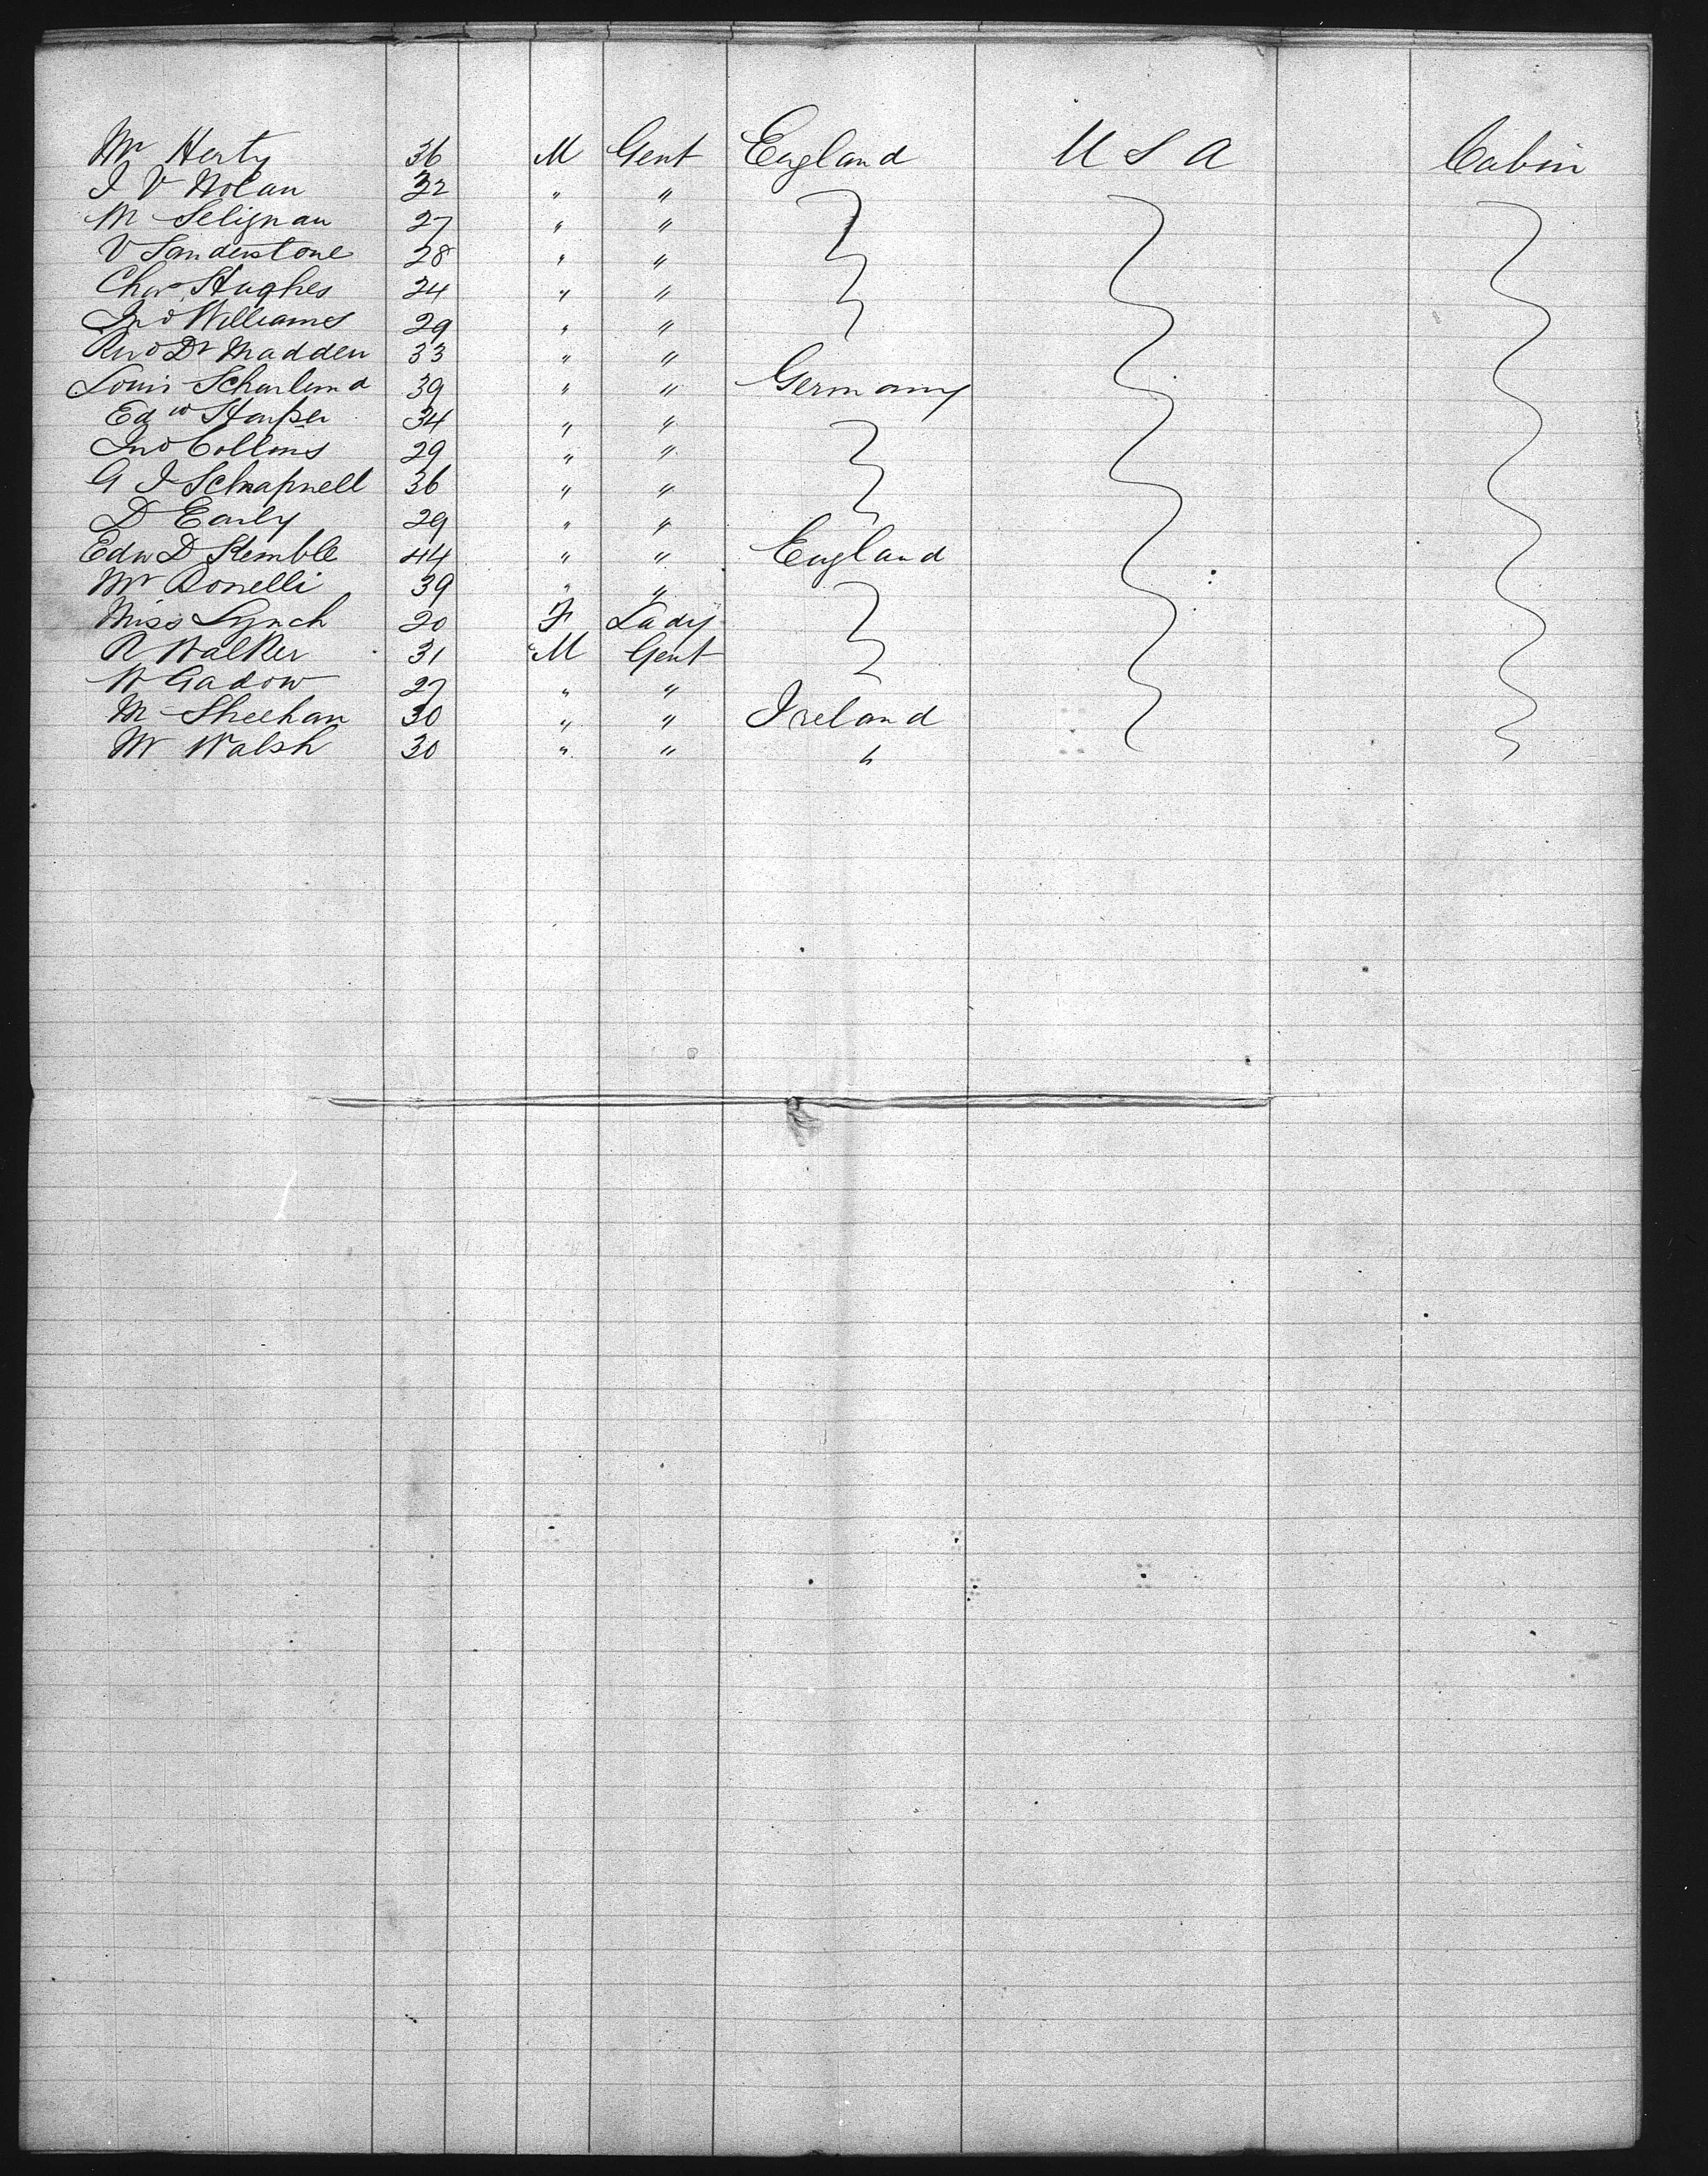 Mr Herty 36 M Gent England U S A Cabin
J V Nolan 32 " "
M Selignan 27 " "
V Sanderstone 28 " "
Chas Hughes 24 " "
Jno Williams 29 " "
Revd Dr Madden 33 " "
Louis 39 " " Germany
Edw Harper 34 " "
Jno Collins 29 " "
G J Schrapnell 36 " "
D Early 29 " "
Edw D Kemble 44 " " England
Mr Bonelli 39 " "
Miss Lynch 20 F Lady
R Walker 31 M Gent
W Gadow 27 " "
M Sheehan 30 " " Ireland
Mr Walsh 30 " " "